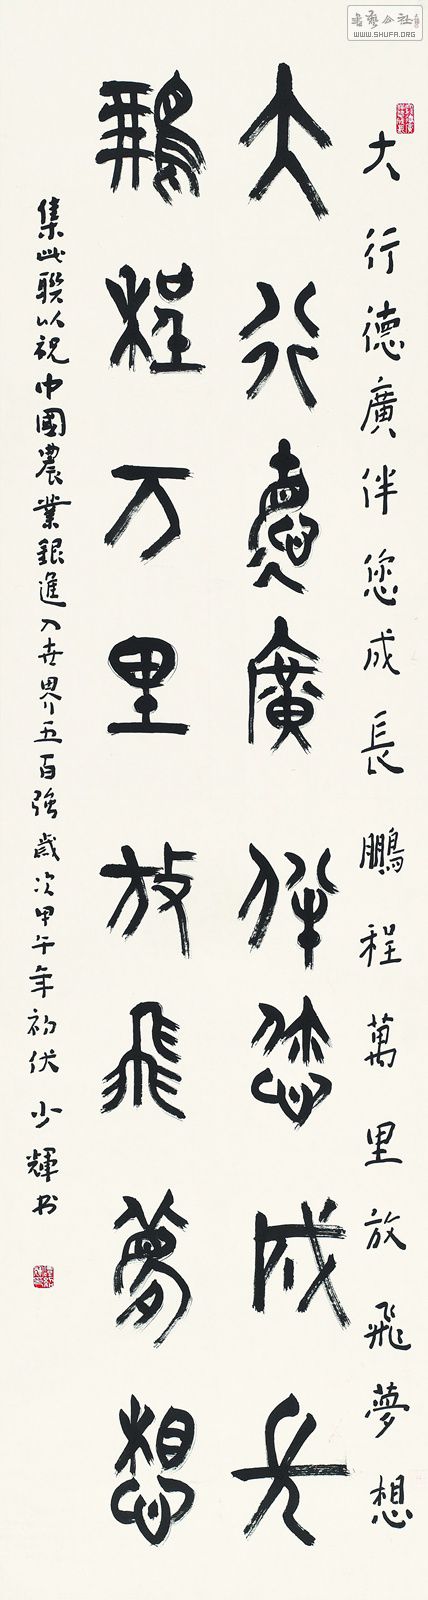 大行德廣伴您成長鵬程萬里放飛夢想
大行德廣伴您成長
鵬程万里放飛夢想
集此聯以祝中國農業銀進入世界五百強歲次甲午年初伏少輝书
書藝公社
WWW.SHUFA.ORG